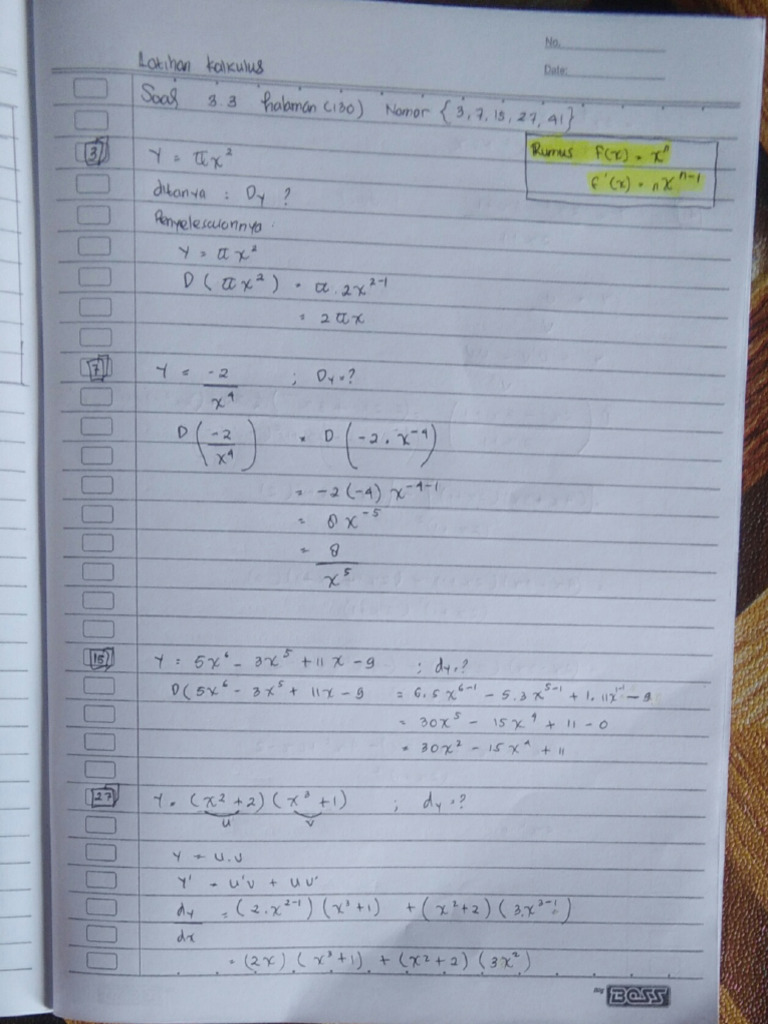 No.
Latihan kalkulus
Date:
Soal 3.3 halaman (130) Nomor {3, 7, 15, 27, 41}
Rumus f(x) = x^n
f'(x) = nx^{n-1}
3 Y = πx²
ditanya : Dy ?
Penyelesaiannya :
Y = πx²
D (πx²) = π . 2x^{2-1}
= 2πx
7 Y = -2/x⁴ ; Dy = ?
D(-2/x⁴) = D(-2 . x^{-4})
= -2(-4) x^{-4-1}
= 8x^{-5}
= 8/x⁵
15 Y = 5x⁶ - 3x⁵ + 11x - 9 ; dy = ?
D(5x⁶ - 3x⁵ + 11x - 9 = 6.5x^{6-1} - 5.3x^{5-1} + 1.11x^{1-1} - 9
= 30x⁵ - 15x⁴ + 11 - 0
= 30x² - 15x⁴ + 11
27 Y = (x² + 2)(x³ + 1) ; dy = ?
u v
Y = u.v
Y' = u'v + uv'
dy/dx = (2.x^{2-1})(x³+1) + (x²+2)(3.x^{3-1})
= (2x)(x³+1) + (x²+2)(3x²)
my BOSS